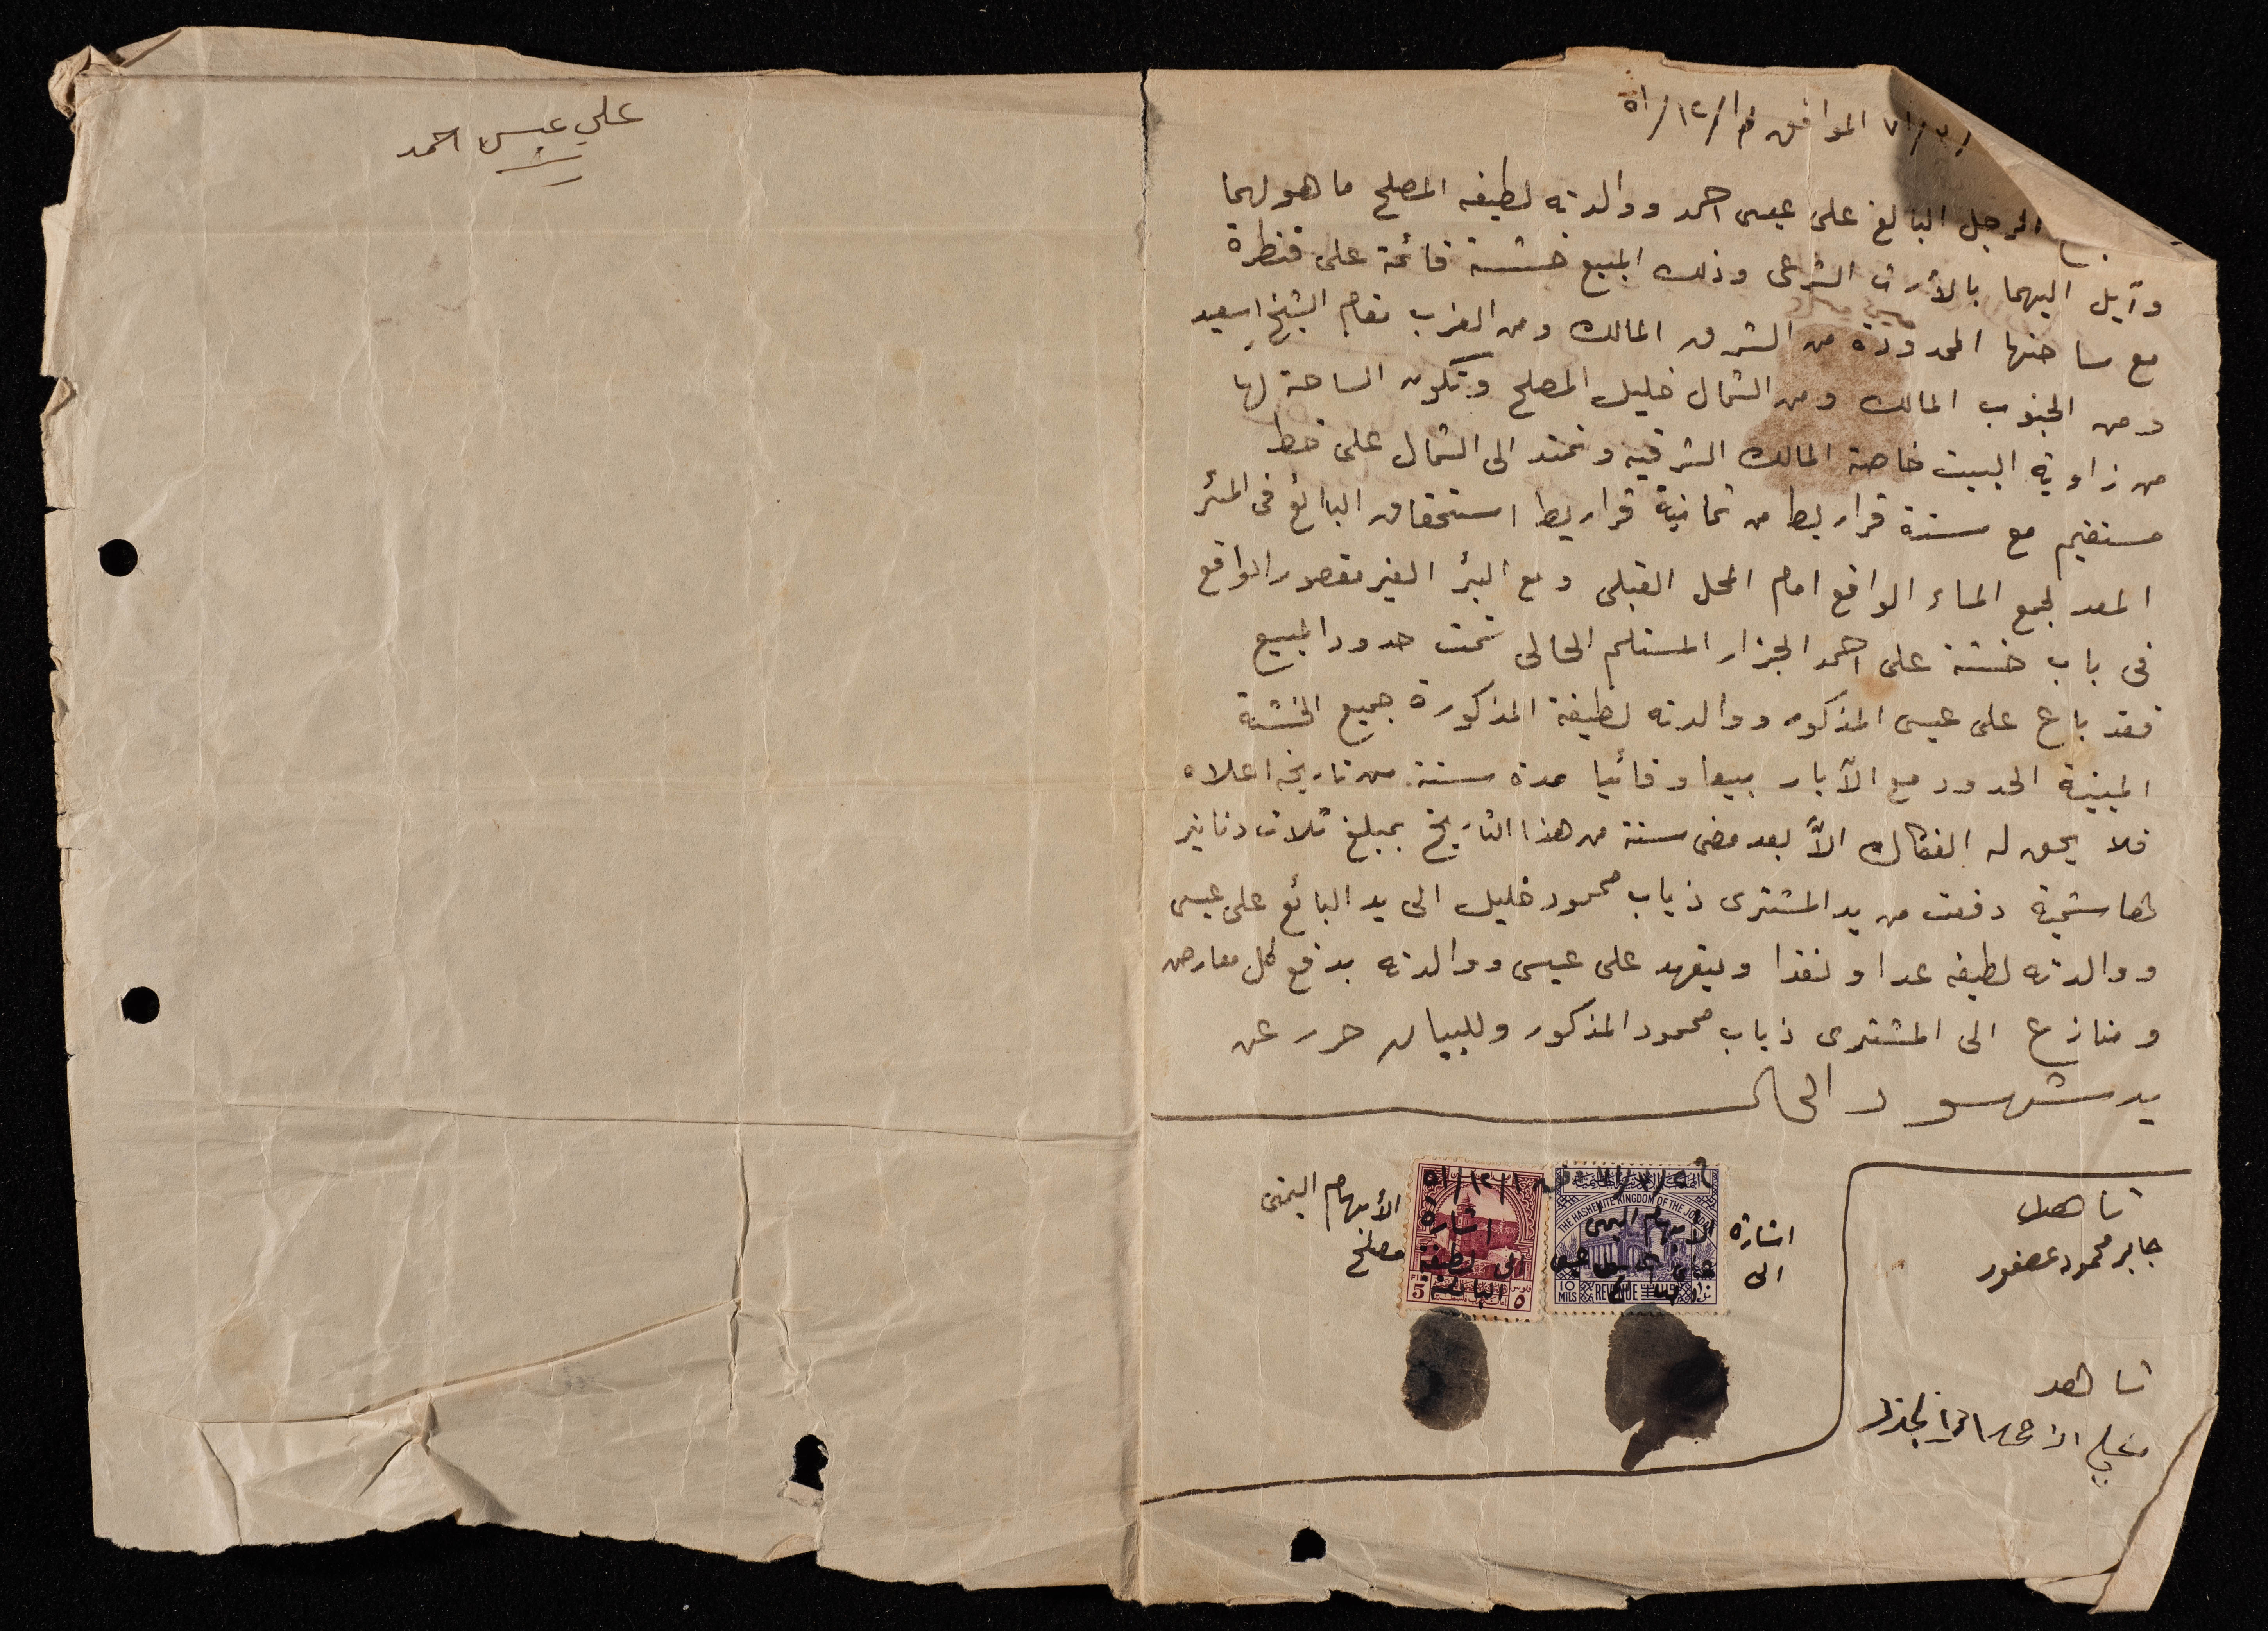 الموافق ١/١٢/٥١
الرجل البالغ على عيسى احمد ووالدته لطيفه المصلح ما هو لهما
وآيل اليهما بالأرث الشرعى وذلك المبيع خشة قائمة على قنطرة
مع ساحتها المحدودة من الشرق المالك ومن الغرب مقام الشيخ اسعيد
ومن الجنوب المالك ومن الشمال خليل المصلح وتكون الساحة لها
من زاوية البيت خاصة المالك الشرقيه وتمتد الى الشمال على خط
مستقيم مع ستة قراريط من ثمانية قراريط استحقاق البائع فى البئر
المعد لجمع الماء الواقع امام المحل القبلى ومع البئر الغير مقصور الواقع
فى باب خشة على احمد الجزار المستلم الحالى تمت حدود المبيع
فقد باع على عيسى المذكور ووالدته لطيفة المذكورة جميع الخشة
المبينة الحدود مع الآبار بيعا وفائيا مدة سنة من تاريخه اعلاه
فلا يحق له الفكاك الاّ بعد مضى سنة من هذا التاريخ بمبلغ ثلاث دنانير
هاشمية دفعت من يد المشترى ذياب محمود خليل الى يد البائع على عيسى
ووالدته لطيفه عدا ونقدا ويتعهد على عيسى ووالدته بدفع كل معارض
ومنازع الى المشترى ذياب محمود المذكور وللبيان حرر عن
يد شهود الحال
شاهد
جابر محمود عصفور
شاهد
الجزار
اشارة
الى
الأبهام اليمنى
THE HASHEMITE KINGDOM OF THE JORDAN
10 MILS
REVENUE
اشارة
الى لطيفة
البائعة
5
٥
الأبهام اليمنى
مصلح
علي عيسى احمد